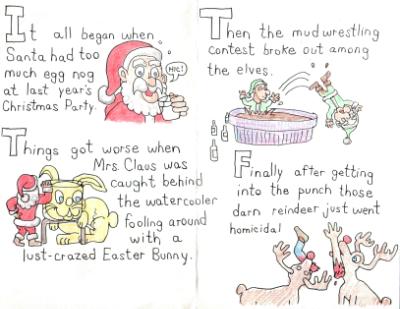 It all began when
Santa had too
much egg nog
at last year's
Christmas Party.
HIC!
Things got worse when
Mrs. Claus was
caught behind
the watercooler
fooling around
with a
lust-crazed Easter Bunny.
Then the mudwrestling
contest broke out among
the elves.
Finally after getting
into the punch those
darn reindeer just went
homicidal